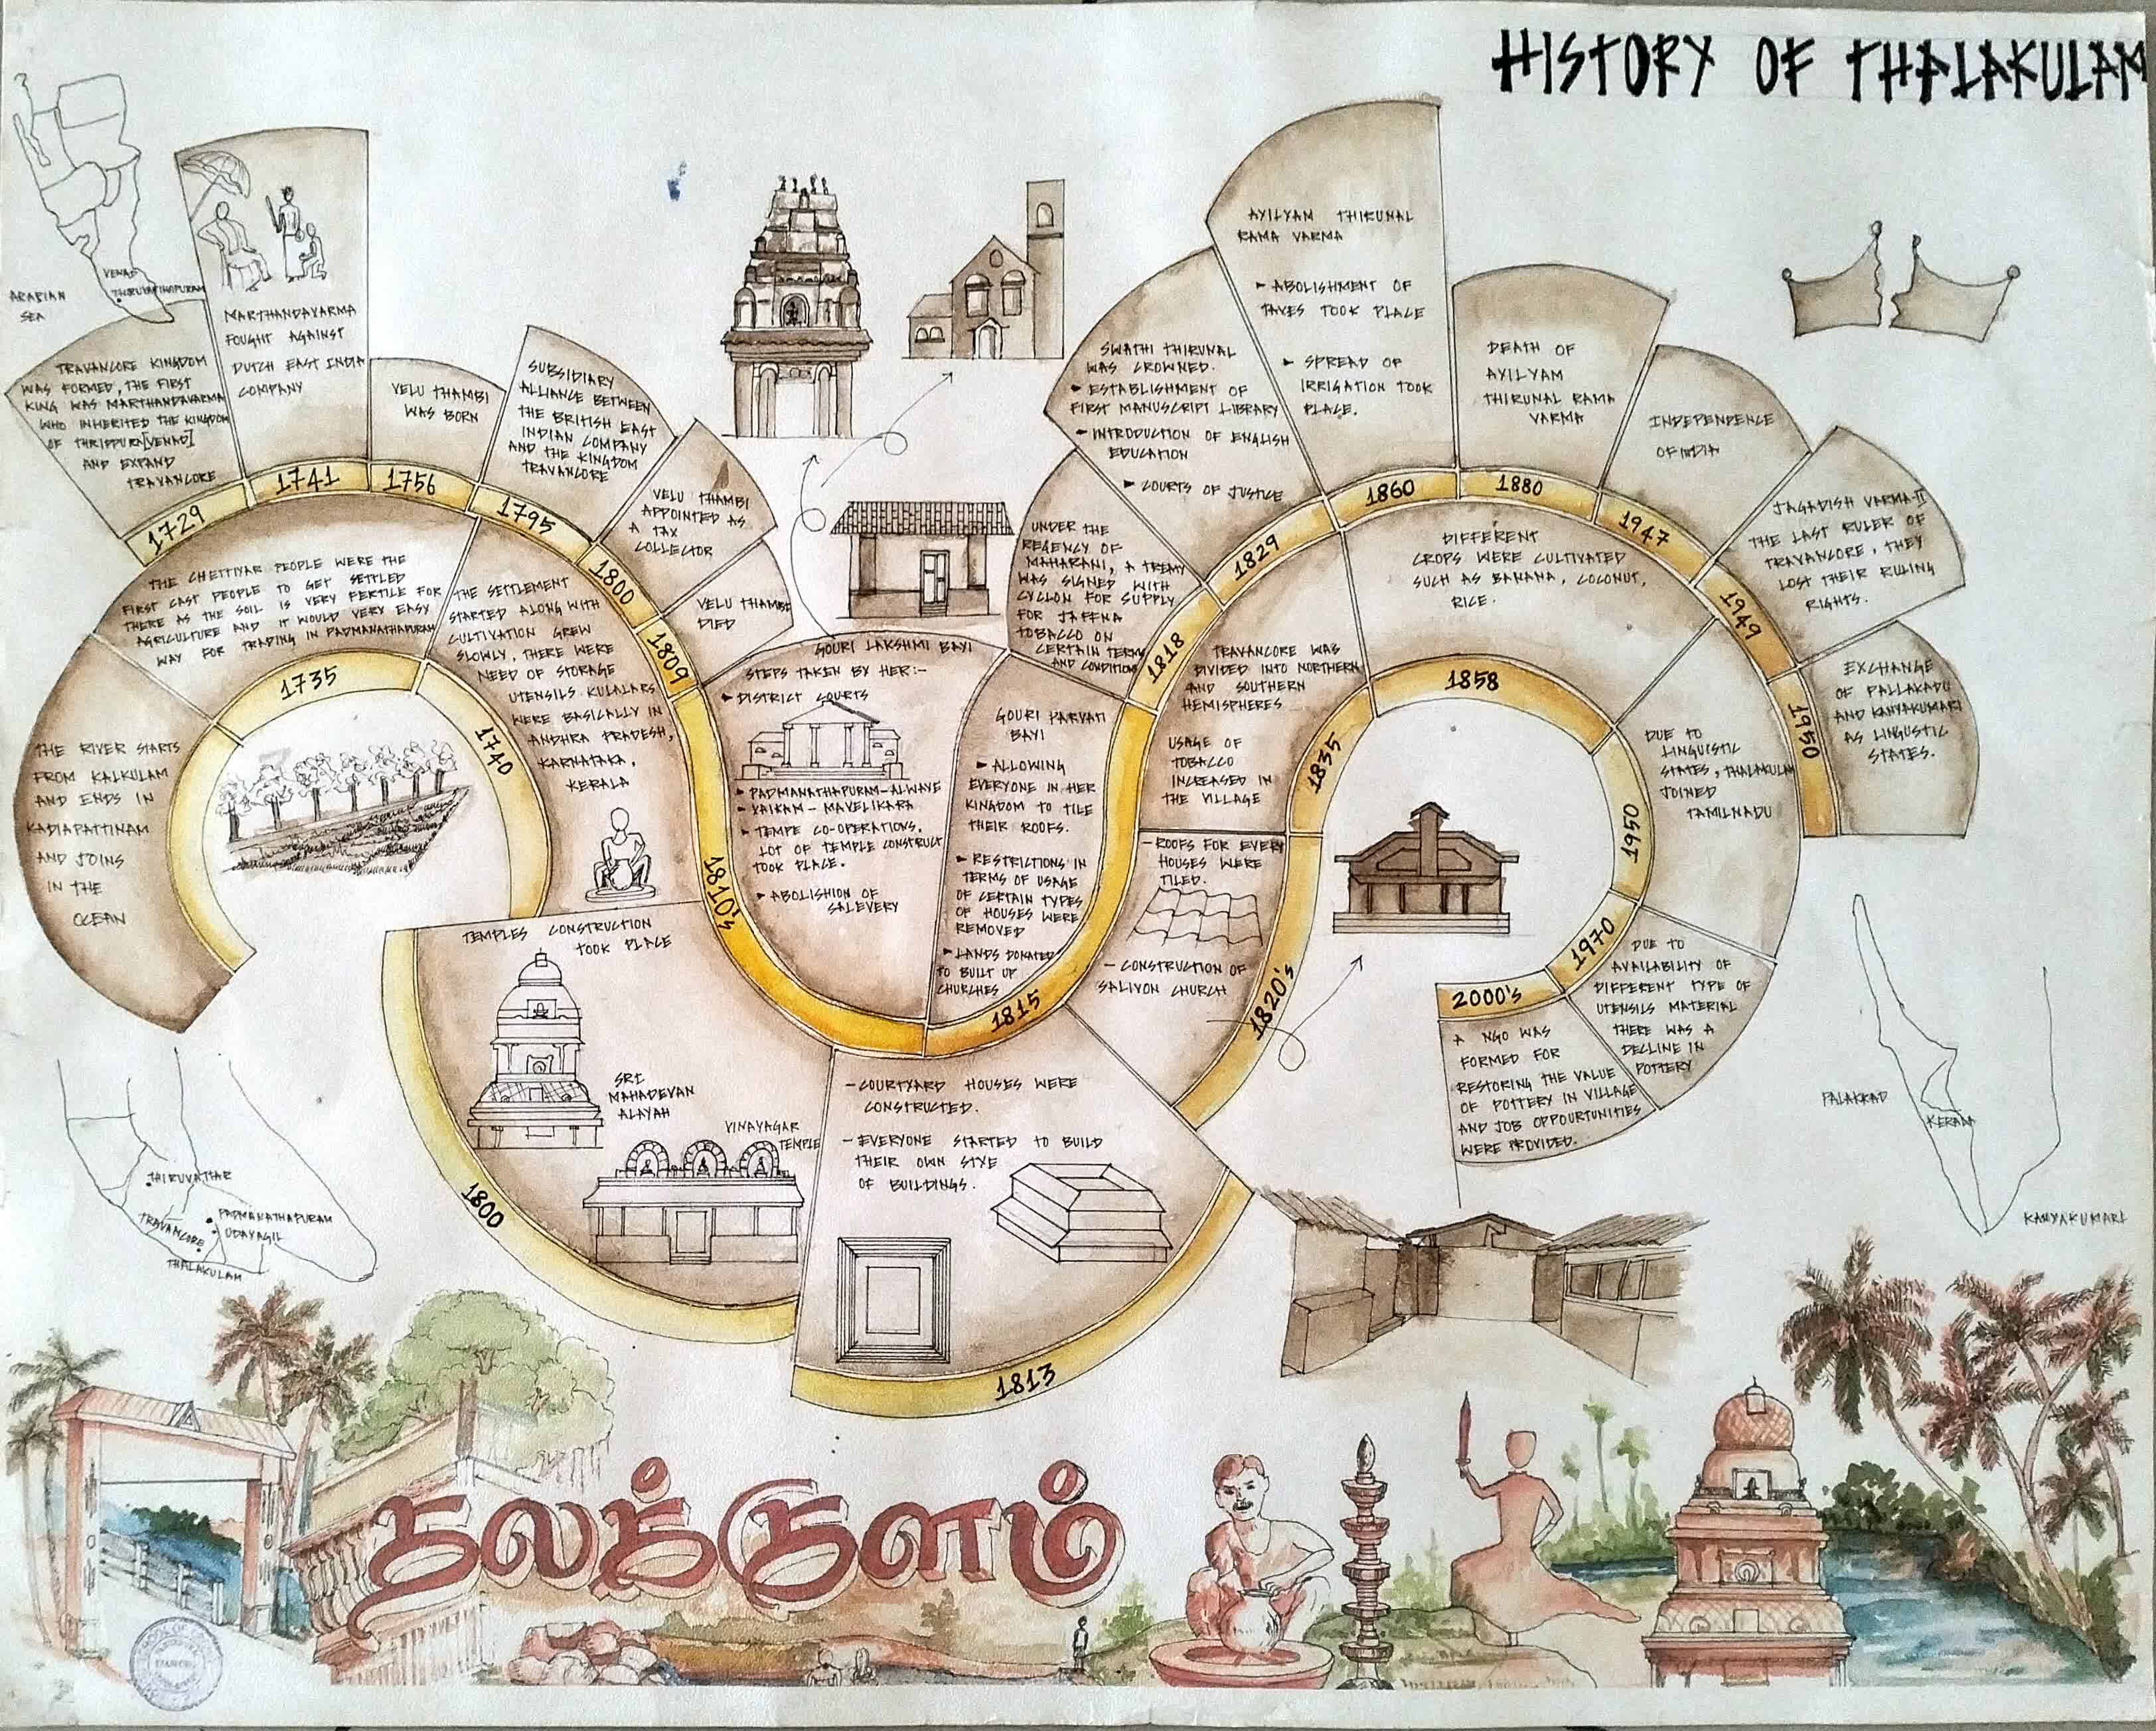 HISTORY OF THALAKULAM
ARABIAN
SEA
VENAD
THIRUVATHAPURAM
TRAVANCORE KINGDOM
WAS FORMED, THE FIRST
KING WAS MARTHANDAVARMA
WHO INHERITED THE KINGDOM
OF THRIPPURA[VENAD]
AND EXPAND
TRAVANCORE
1729
MARTHANDAVARMA
FOUGHT AGAINST
DUTCH EAST INDIA
COMPANY
1741
VELU THAMBI
WAS BORN
1756
SUBSIDIARY
ALLIANCE BETWEEN
THE BRITISH EAST
INDIAN COMPANY
AND THE KINGDOM
TRAVANCORE
1795
VELU THAMBI
APPOINTED AS
A TAX
COLLECTOR
1800
VELU THAMBI
DIED
1809
GOURI LAKSHMI BAYI
STEPS TAKEN BY HER:-
► DISTRICT COURTS
► PADMANATHAPURAM-ALWAYE
- VAIKAM - MAVELIKARA
► TEMPE CO-OPERATIONS,
LOT OF TEMPLE CONSTRUCT
TOOK PLACE.
► ABOLISHION OF
SALEVERY
1810's
GOURI PARVATI
BAYI
► ALLOWING
EVERYONE IN HER
KINGDOM TO TILE
THEIR ROOFS.
► RESTRICTIONS IN
TERMS OF USAGE
OF CERTAIN TYPES
OF HOUSES WERE
REMOVED
► LANDS DONATED
TO BUILT UP
CHURCHES
1815
UNDER THE
REGENCY OF
MAHARANI, A TREATY
WAS SIGNED WITH
CYCLON FOR SUPPLY
FOR JAFFNA
TOBACCO ON
CERTAIN TERMS
AND CONDITIONS
1818
SWATHI THIRUNAL
WAS CROWNED.
► ESTABLISHMENT OF
FIRST MANUSCRIPT LIBRARY
► INTRODUCTION OF ENGLISH
EDUCATION
► COURTS OF JUSTICE
1829
AYILYAM THIRUNAL
RAMA VARMA
► ABOLISHMENT OF
TAXES TOOK PLACE
► SPREAD OF
IRRIGATION TOOK
PLACE.
1860
DEATH OF
AYILYAM
THIRUNAL RAMA
VARMA
1880
INDEPENDENCE
OF INDIA
1947
JAGADISH VARMA-II
THE LAST RULER OF
TRAVANCORE, THEY
LOST THEIR RULING
RIGHTS.
1949
EXCHANGE
OF PALLAKADU
AND KANYAKUMARI
AS LINGUSTIC
STATES.
1950
THE RIVER STARTS
FROM KALKULAM
AND ENDS IN
KADIAPATTINAM
AND JOINS
IN THE
OCEAN
THE CHETTIYAR PEOPLE WERE THE
FIRST CAST PEOPLE TO GET SETTLED
THERE AS THE SOIL IS VERY FERTILE FOR
AGRICULTURE AND IT WOULD VERY EASY
WAY FOR TRADING IN PADMANATHAPURAM
1735
THE SETTLEMENT
STARTED ALONG WITH
CULTIVATION GREW
SLOWLY, THERE WERE
NEED OF STORAGE
UTENSILS KULALARS
WERE BASICALLY IN
ANDHRA PRADESH,
KARNATAKA,
KERALA
1740
TEMPLES CONSTRUCTION
TOOK PLACE
SRI
MAHADEVAN
ALAYAH
VINAYAGAR
TEMPLE
1800
- COURTYARD HOUSES WERE
CONSTRUCTED.
- EVERYONE STARTED TO BUILD
THEIR OWN STYE
OF BUILDINGS.
1813
- ROOFS FOR EVERY
HOUSES WERE
TILED.
- CONSTRUCTION OF
SALIVON CHURCH
1820's
TRAVANCORE WAS
DIVIDED INTO NORTHERN
AND SOUTHERN
HEMISPHERES
USAGE OF
TOBACCO
INCREASED IN
THE VILLAGE
1835
DIFFERENT
CROPS WERE CULTIVATED
SUCH AS BANANA, COCONUT,
RICE.
1858
DUE TO
LINGUISTIC
STATES, THALAKULAM
JOINED
TAMILNADU
1950
DUE TO
AVAILABILITY OF
DIFFERENT TYPE OF
UTENSILS MATERIAL
THERE WAS A
DECLINE IN
POTTERY
1970
2000's
A NGO WAS
FORMED FOR
RESTORING THE VALUE
OF POTTERY IN VILLAGE
AND JOB OPPOURTUNITIES
WERE PROVIDED.
THIRUVATTAR
TRAVANCORE
PADMANATHAPURAM
UDAYAGIL
THALAKULAM
PALAKKAD
KERALA
KANYAKUMARI
தலக்குளம்